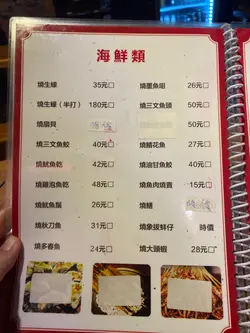 海鮮類
燒生蠔 35元□
燒生蠔（半打） 180元□
燒扇貝
燒三文魚鮫 40元□
燒魷魚乾 42元□
燒雞泡魚乾 48元□
燒魷魚鬚 50元□
燒秋刀魚 31元□
燒多春魚 24元□
燒墨魚咀 26元□
燒三文魚頭 50元□
50元□
燒鯖花魚 27元□
燒油甘魚鮫 40元□
燒魚肉燒賣 15元□
燒鱔
燒象拔蚌仔 時價
燒大頭蝦 28元□